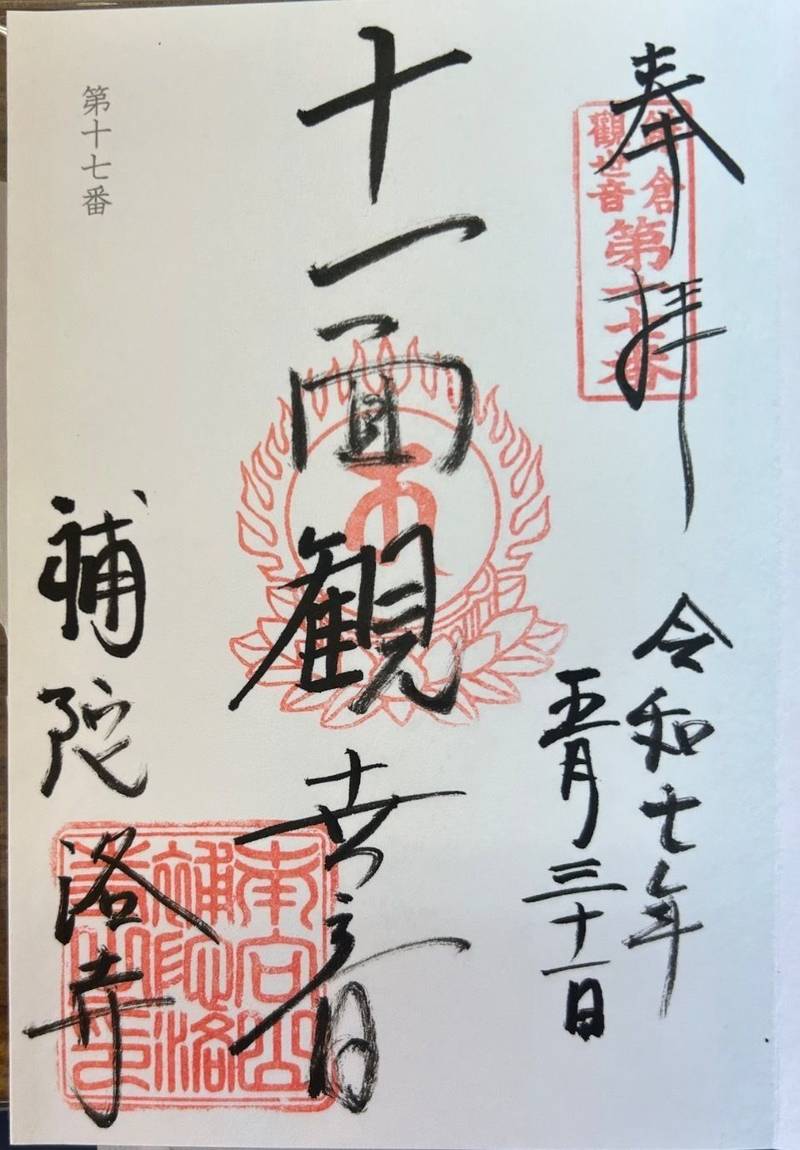 奉拝
鎌倉
觀世音
第十七番
令和七年
五月三十一日
十一面観世音
補陀洛寺
南向山
補陀洛
寺之印
第十七番